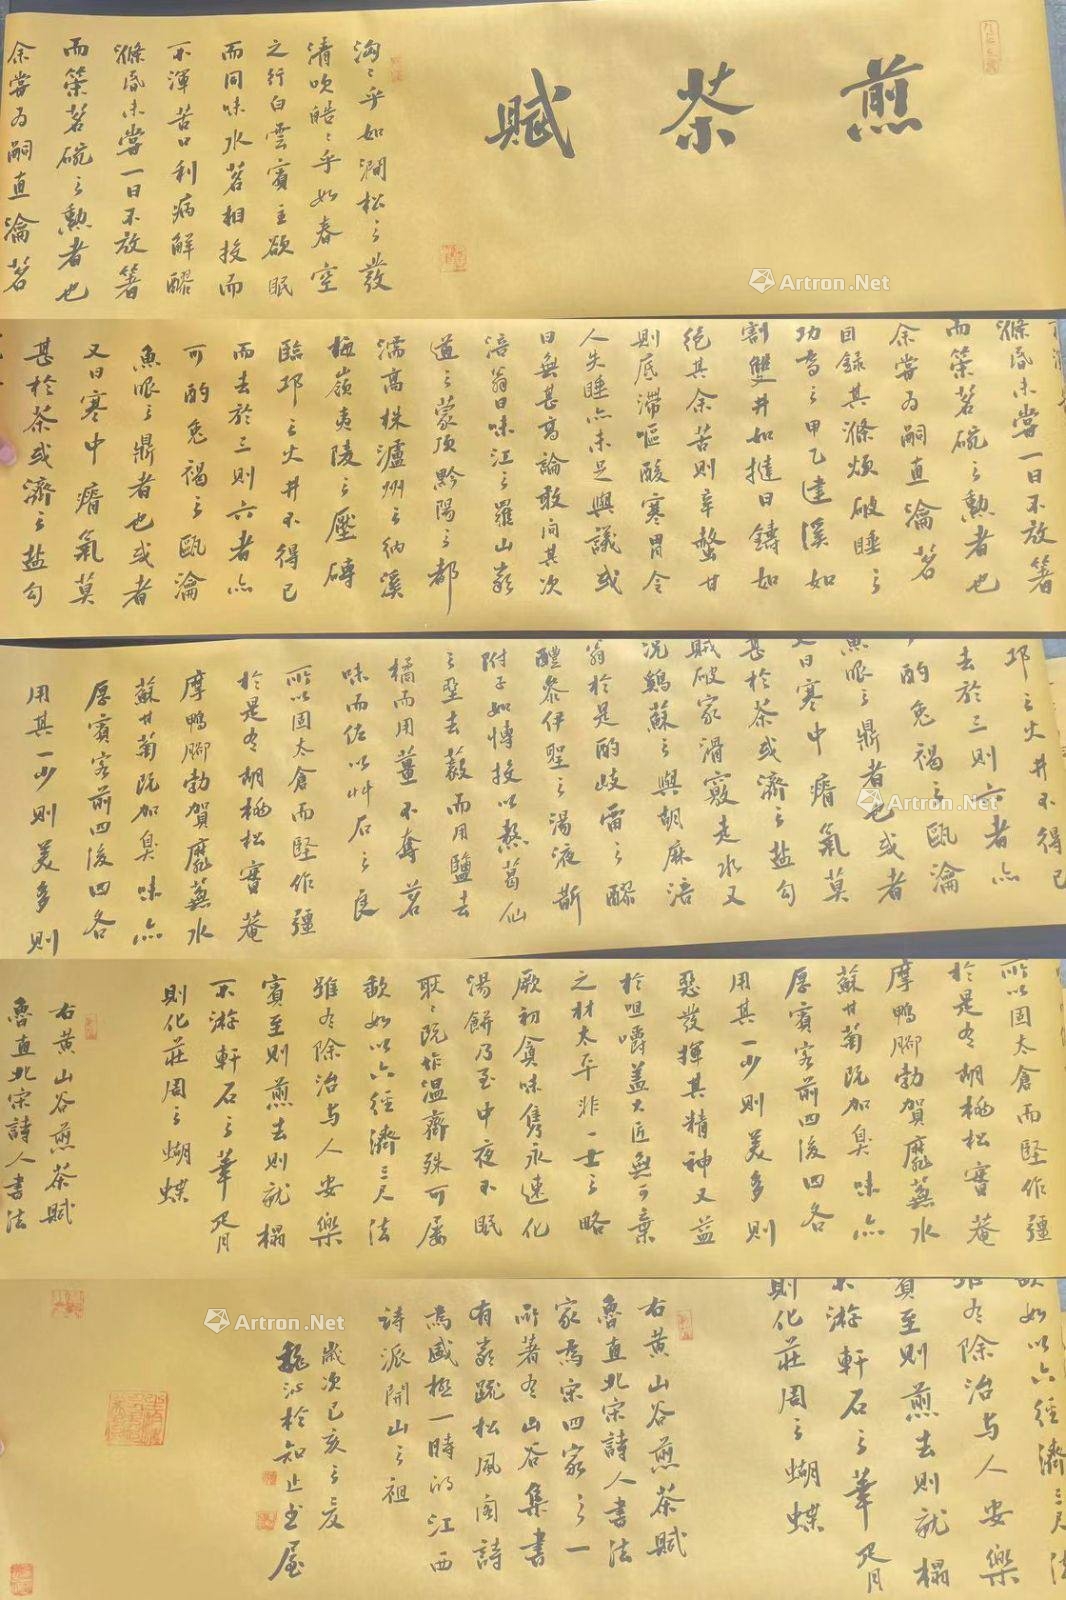 煎茶賦
洶〻乎如澗松之發
清吹皓〻乎如春空
之行白雲賓主欲眠
而同味水茗相投而
不渾苦口利病解醪
滌昏未嘗一日不放箸
而策茗碗之勲者也
余嘗為嗣直瀹茗
滌昏未嘗一日不放箸
而策茗碗之勲者也
余嘗為嗣直瀹茗
因録其滌煩破睡之
功為之甲乙建溪如
割雙井如撻日鑄如
絕其余苦則辛螫甘
則底滯嘔酸寒胃令
人失睡亦未足與議或
曰無甚高論敢問其次
涪翁曰味江之羅山嚴
道之蒙頂黔陽之都
濡高株瀘州之納溪
梅嶺夷陵之壓磚
臨邛之火井不得已
而去於三則六者亦
可酌兔褐之甌瀹
魚眼之鼎者也或者
又曰寒中瘠氣莫
甚於茶或濟之盐勾
邛之火井不得已
去於三則六者亦
酌兔褐之甌瀹
魚眼之鼎者也或者
又曰寒中瘠氣莫
甚於茶或濟之盐勾
賊破家滑竅走水又
況鷄蘇之與胡麻涪
翁於是酌岐雷之醪
醴參伊聖之湯液斮
附子如博投以熬葛仙
之堊去藙而用鹽去
橘而用薑不奪茗
味而佐以艸石之良
所以固太倉而堅作彊
於是有胡桃松實菴
摩鴨脚勃賀蘼蕪水
蘇甘菊既加臭味亦
厚賓客前四後四各
用其一少則美多則
所以固太倉而堅作彊
於是有胡桃松實菴
摩鴨脚勃賀蘼蕪水
蘇甘菊既加臭味亦
厚賓客前四後四各
用其一少則美多則
惡發揮其精神又益
於咀嚼蓋大匠無可棄
之材太平非一士之略
厥初貪味雋永速化
湯餅乃至中夜不眠
耿〻既作温齊殊可屢
歃如以六經濟三尺法
雖有除治与人安樂
賓至則煎去則就榻
不游軒石之華胥
則化莊周之蝴蝶
右黃山谷煎茶賦
魯直北宋詩人書法
歃如以六經濟三尺法
雖有除治与人安樂
賓至則煎去則就榻
不游軒石之華胥
則化莊周之蝴蝶
右黃山谷煎茶賦
魯直北宋詩人書法
家為宋四家之一
所著有山谷集書
有嚴疏松風閣詩
為盛極一時的江西
詩派開山之祖
歲次己亥之夏
於知止書屋
Artron.Net
Artron.Net
Artron.Net